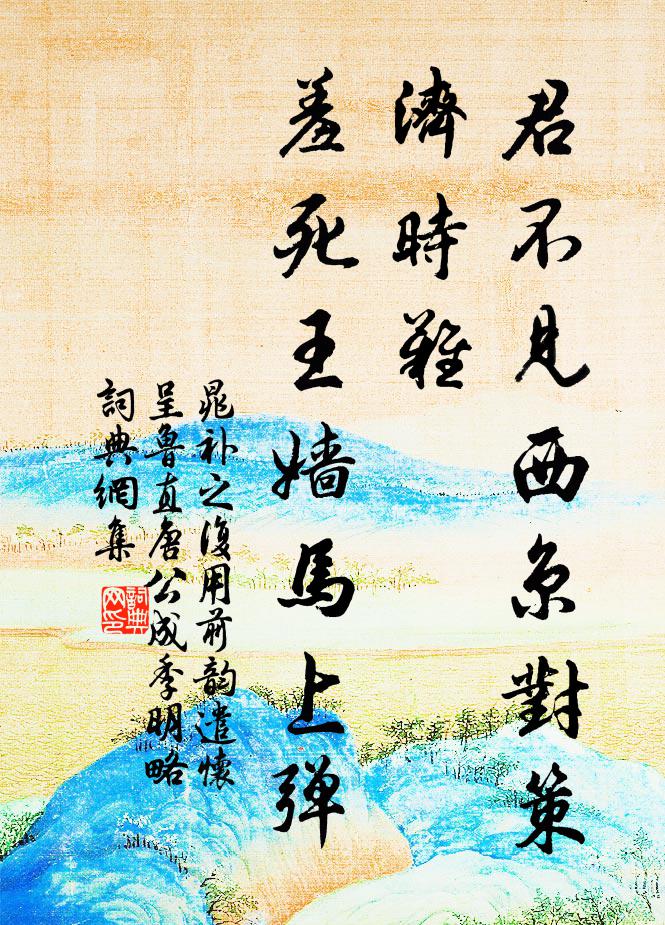 君不见西京對策
濟時難
羞死王嫱馬上弹
晁补之復用前韵遣懷
呈魯直唐公成季明略
詞典網集
詞典
网印